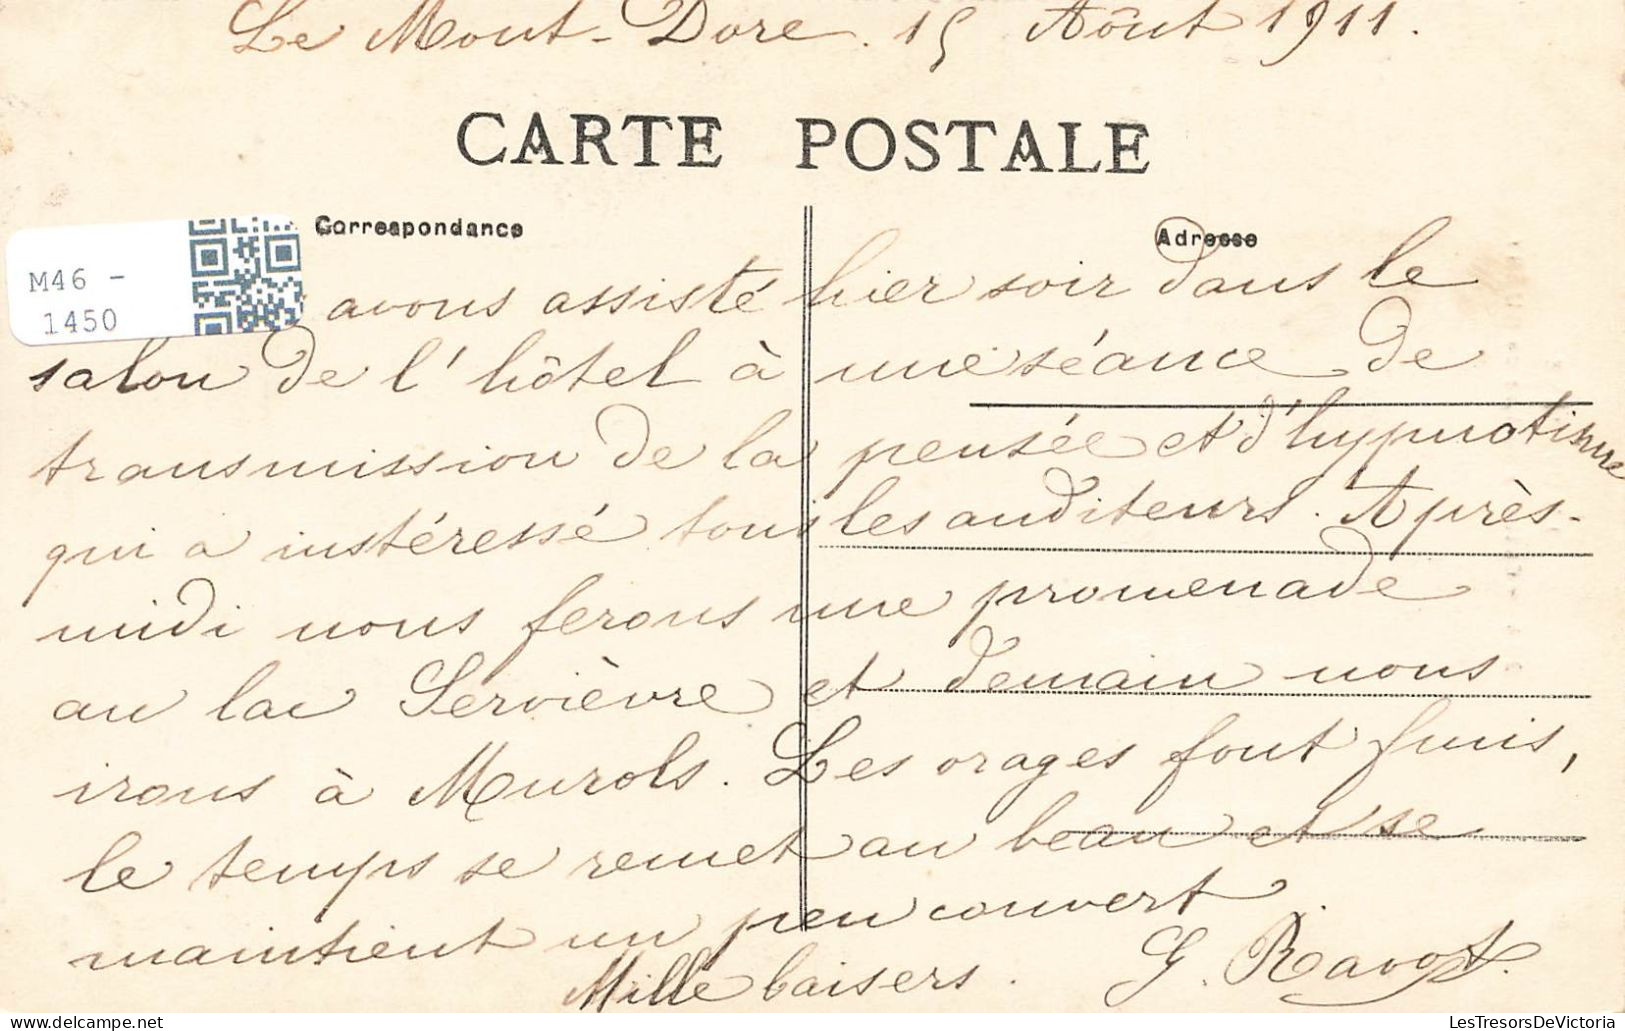 Le Mont-Dore. 15 Août 1911.
CARTE POSTALE
Correspondance
Adresse
M46 -
1450
avons assisté hier soir dans le
salon de l'hôtel à une séance de
transmission de la pensée et d'hypnotisme
qui a instéressé tous les auditeurs. Après-
midi nous ferons une promenade
au lac Servièvre et demain nous
irons à Murols. Les orages sont finis,
le temps se remet au beau et se
maintient un peu couvert.
Mille baisers. G. Ravot.
LesTresorsDeVictoria